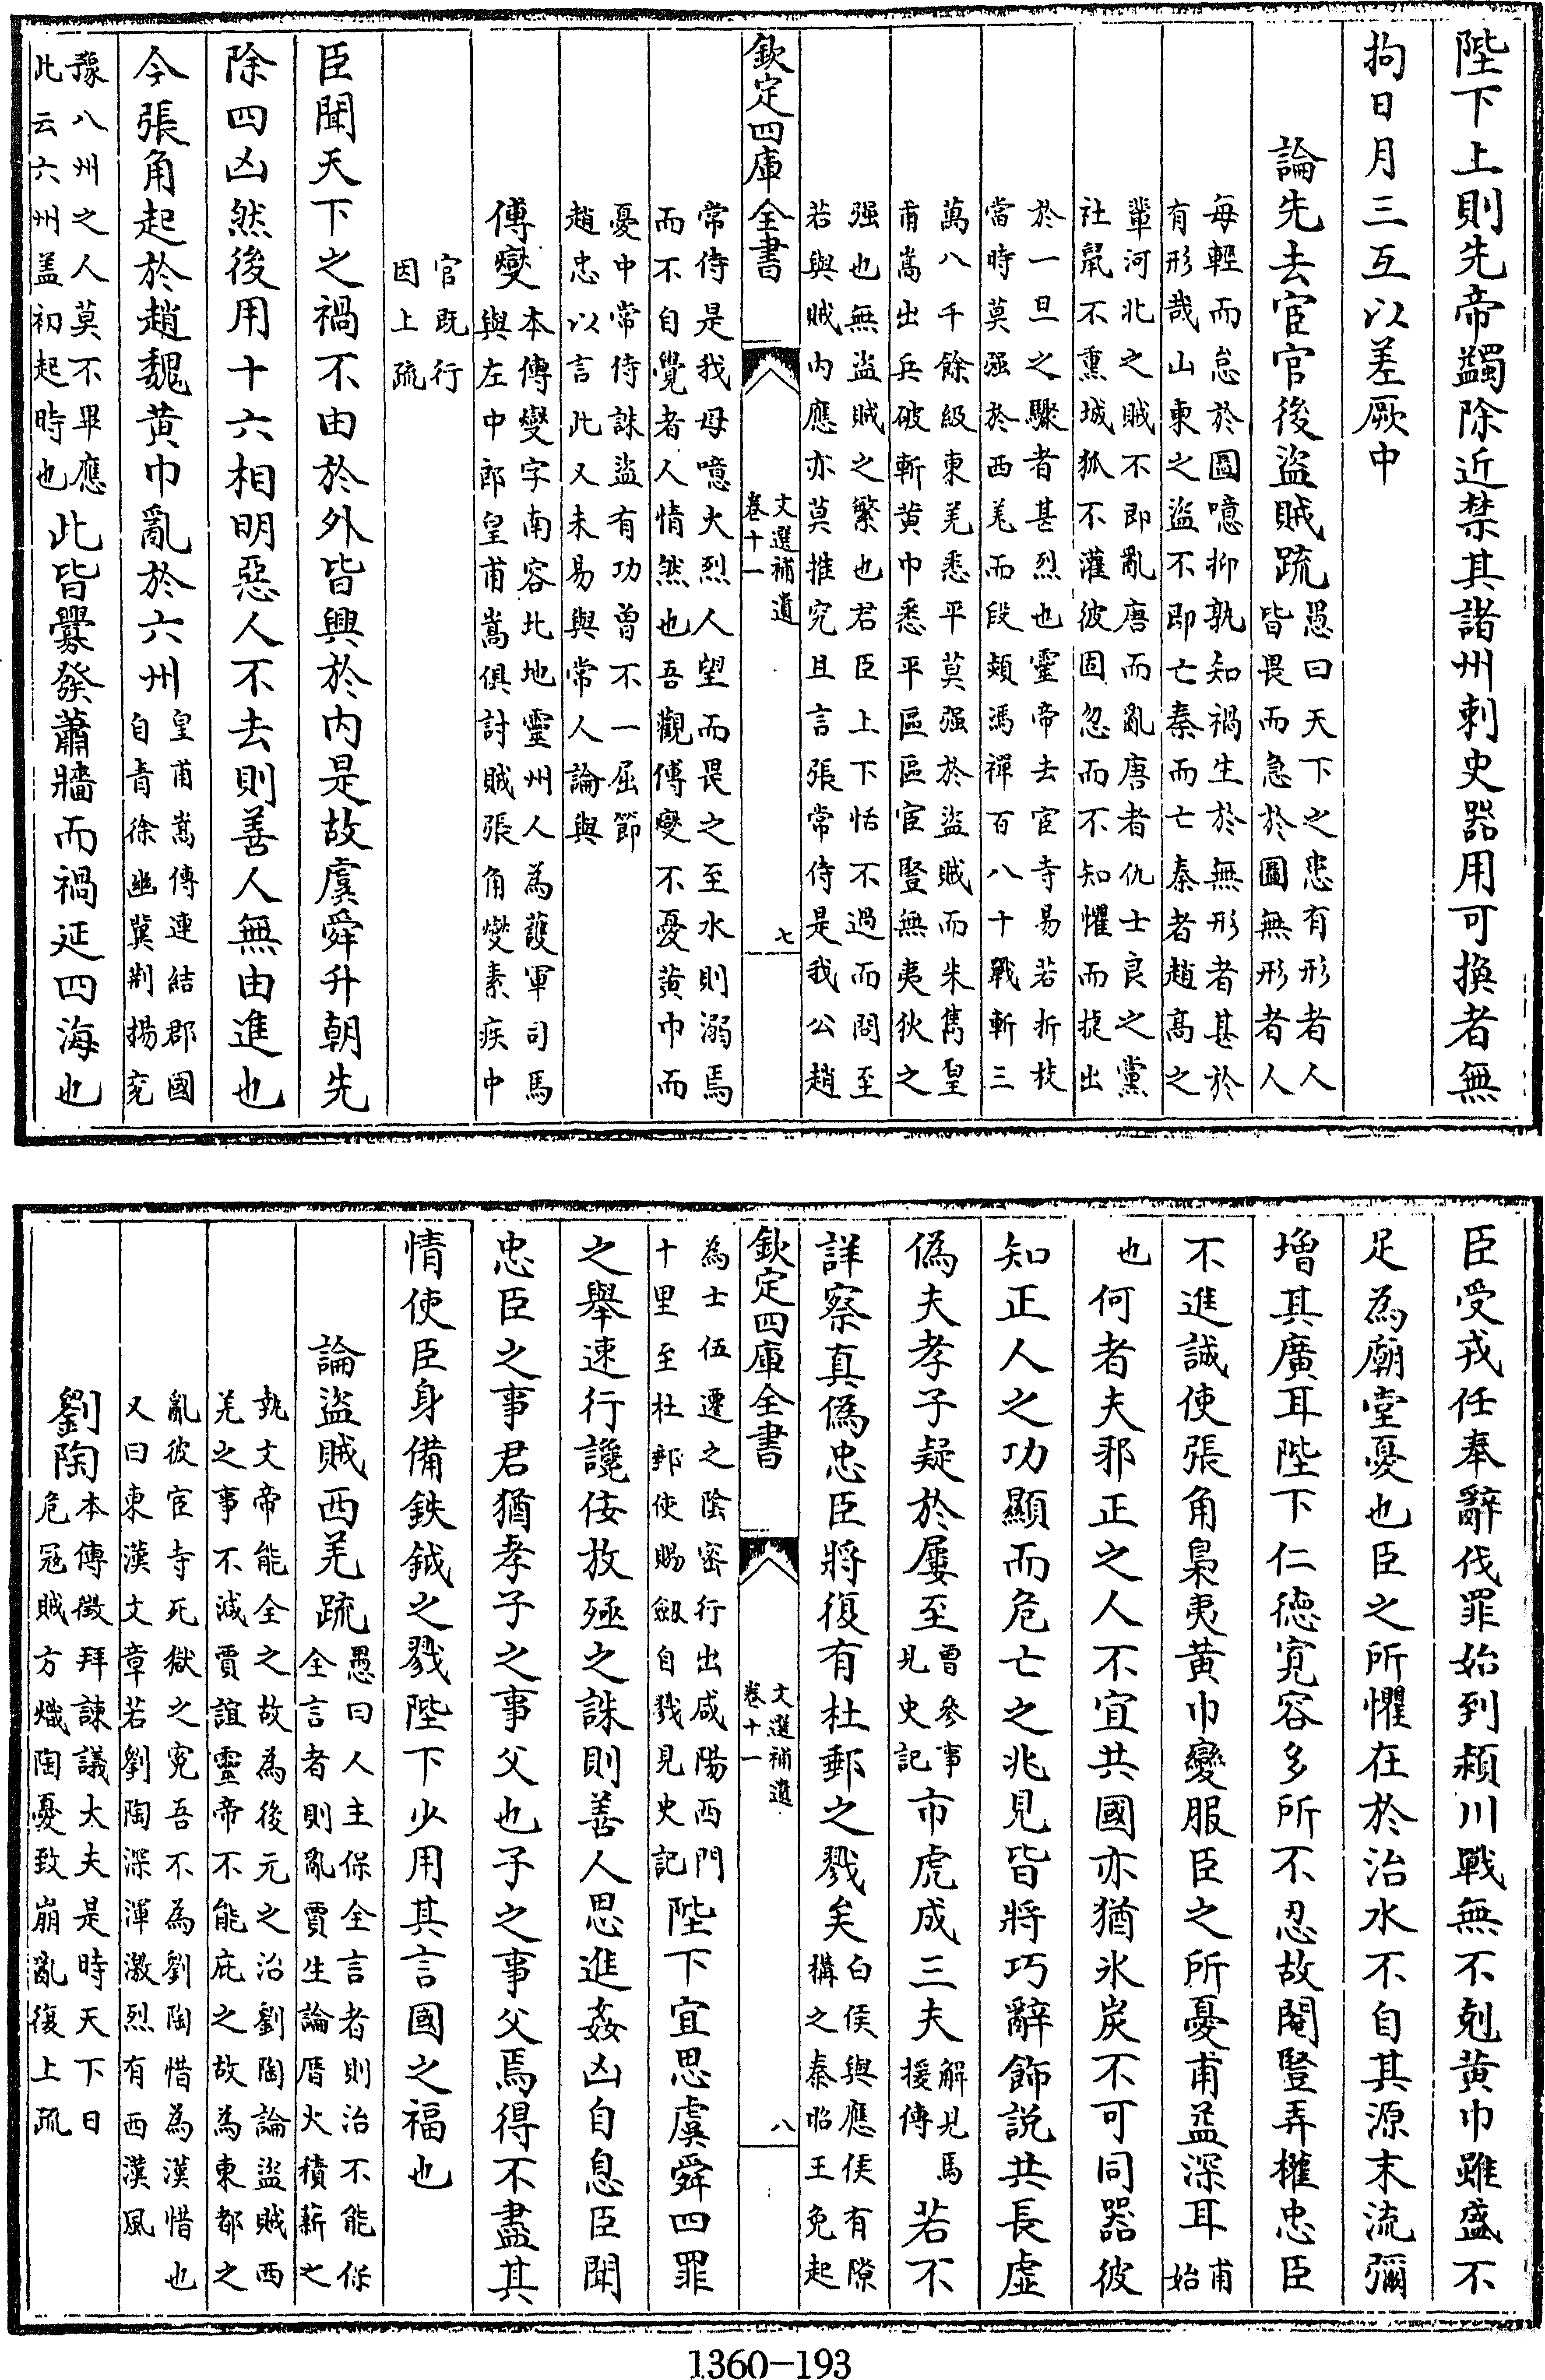 陛下上則先帝蠲除近禁其諸州刺史器用可換者無
拘日月三互以差厥中
論先去宦官後盜賊疏
愚曰天下之患有形者人
皆畏而急於圖無形者人
每輕而怠於圖噫抑孰知禍生於無形者甚於
有形哉山東之盜不即亡秦而亡秦者趙高之
輩河北之賊不即亂唐而亂唐者仇士良之黨
社鼠不熏城狐不灌彼固忽而不知懼而㨗出
於一旦之驟者甚烈也靈帝去宦寺易若折枝
當時莫强於西羌而段熲馮禪百八十戰斬三
萬八千餘級東羌悉平莫强於盜賊而朱雋皇
甫嵩出兵破斬黄巾悉平區區宦豎無夷狄之
强也無盜賊之繁也君臣上下恬不過而問至
若與賊内應亦莫推究且言張常侍是我公趙
欽定四庫全書
文選補遺
卷十一
七
常侍是我母噫火烈人望而畏之至水則溺焉
而不自覺者人情然也吾觀傅燮不憂黄巾而
憂中常侍誅盜有功曾不一屈節
趙忠以言此又未易與常人論與
傅燮
本傳燮字南容北地靈州人為䕶軍司馬
與左中郎皇甫嵩俱討賊張角燮素疾中
官既行
因上疏
臣聞天下之禍不由於外皆興於内是故虞舜升朝先
除四凶然後用十六相明惡人不去則善人無由進也
今張角起於趙魏黄巾亂於六州
皇甫嵩傳連結郡國
自青徐幽冀荆揚兖
豫八州之人莫不畢應
此云六州盖初起時也
此皆釁發蕭牆而禍延四海也
臣受戎任奉辭伐罪始到潁川戰無不剋黄巾雖盛不
足為廟堂憂也臣之所懼在於治水不自其源末流彌
增其廣耳陛下仁德寛容多所不忍故閹豎弄權忠臣
不進誠使張角梟夷黄巾變服臣之所憂甫益深耳
甫
始
也
何者夫邪正之人不宜共國亦猶氷炭不可同器彼
知正人之功顯而危亡之兆見皆將巧辭飾説共長虚
偽夫孝子疑於屢至
曽參事
見史記
市虎成三夫
解見馬
援傳
若不
詳察真偽忠臣將復有杜郵之戮矣
白侯與應侯有隙
構之秦昭王免起
欽定四庫全書
文選補遺
卷十一
八
為士伍遷之陰密行出咸陽西門
十里至杜郵使賜劔自戮見史記
陛下宜思虞舜四罪
之舉速行讒佞放殛之誅則善人思進姦凶自息臣聞
忠臣之事君猶孝子之事父也子之事父焉得不盡其
情使臣身備鈇鉞之戮陛下少用其言國之福也
論盜賊西羌疏
愚曰人主保全言者則治不能保
全言者則亂賈生論厝火積薪之
埶文帝能全之故為後元之治劉陶論盜賊西
羌之事不減賈誼靈帝不能庇之故為東都之
亂彼宦寺死獄之寃吾不為劉陶惜為漢惜也
又曰東漢文章若劉陶深渾激烈有西漢風
劉陶
本傳徴拜諫議大夫是時天下日
危冦賊方熾陶憂致崩亂復上疏
1360-193